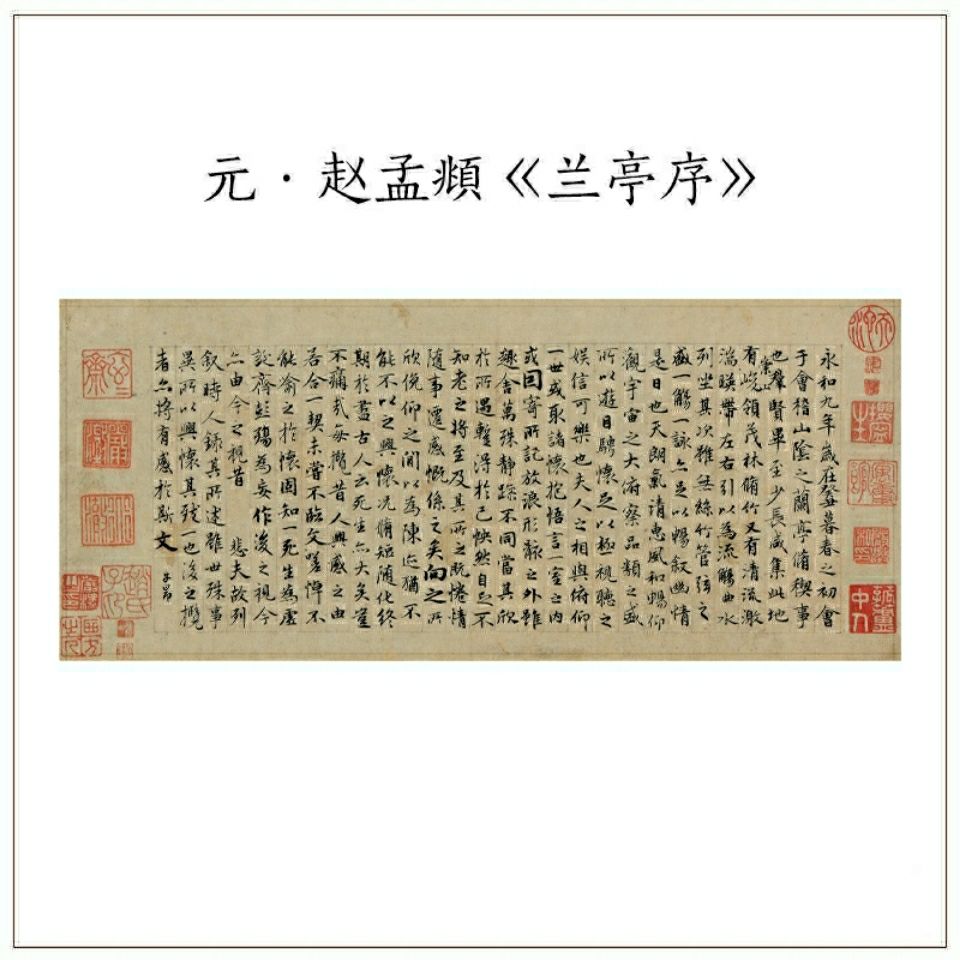 元·赵孟頫《兰亭序》
永和九年歲在癸丑暮春之初會
于會稽山陰之蘭亭脩稧事
也羣賢畢至少長咸集此地
有崇山峻領茂林脩竹又有清流激
湍暎帶左右引以為流觴曲水
列坐其次雖無絲竹管弦之
盛一觴一詠亦足以暢叙幽情
是日也天朗氣清惠風和暢仰
觀宇宙之大俯察品類之盛
所以遊目騁懷足以極視聽之
娛信可樂也夫人之相與俯仰
一世或取諸懷抱悟言一室之內
或因寄所託放浪形骸之外雖
趣舍萬殊靜躁不同當其欣
於所遇暫得於己怏然自足不
知老之將至及其所之既惓情
隨事遷感慨係之矣向之所
欣俛仰之間以為陳迹猶不
能不以之興懷況脩短隨化終
期於盡古人云死生亦大矣豈
不痛哉每攬昔人興感之由
若合一契未嘗不臨文嗟悼不
能喻之於懷固知一死生為虛
誕齊彭殤為妄作後之視今
亦由今之視昔 悲夫故列
叙時人錄其所述雖世殊事
異所以興懷其致一也後之攬
者亦將有感於斯文
子昂
趙氏子昂